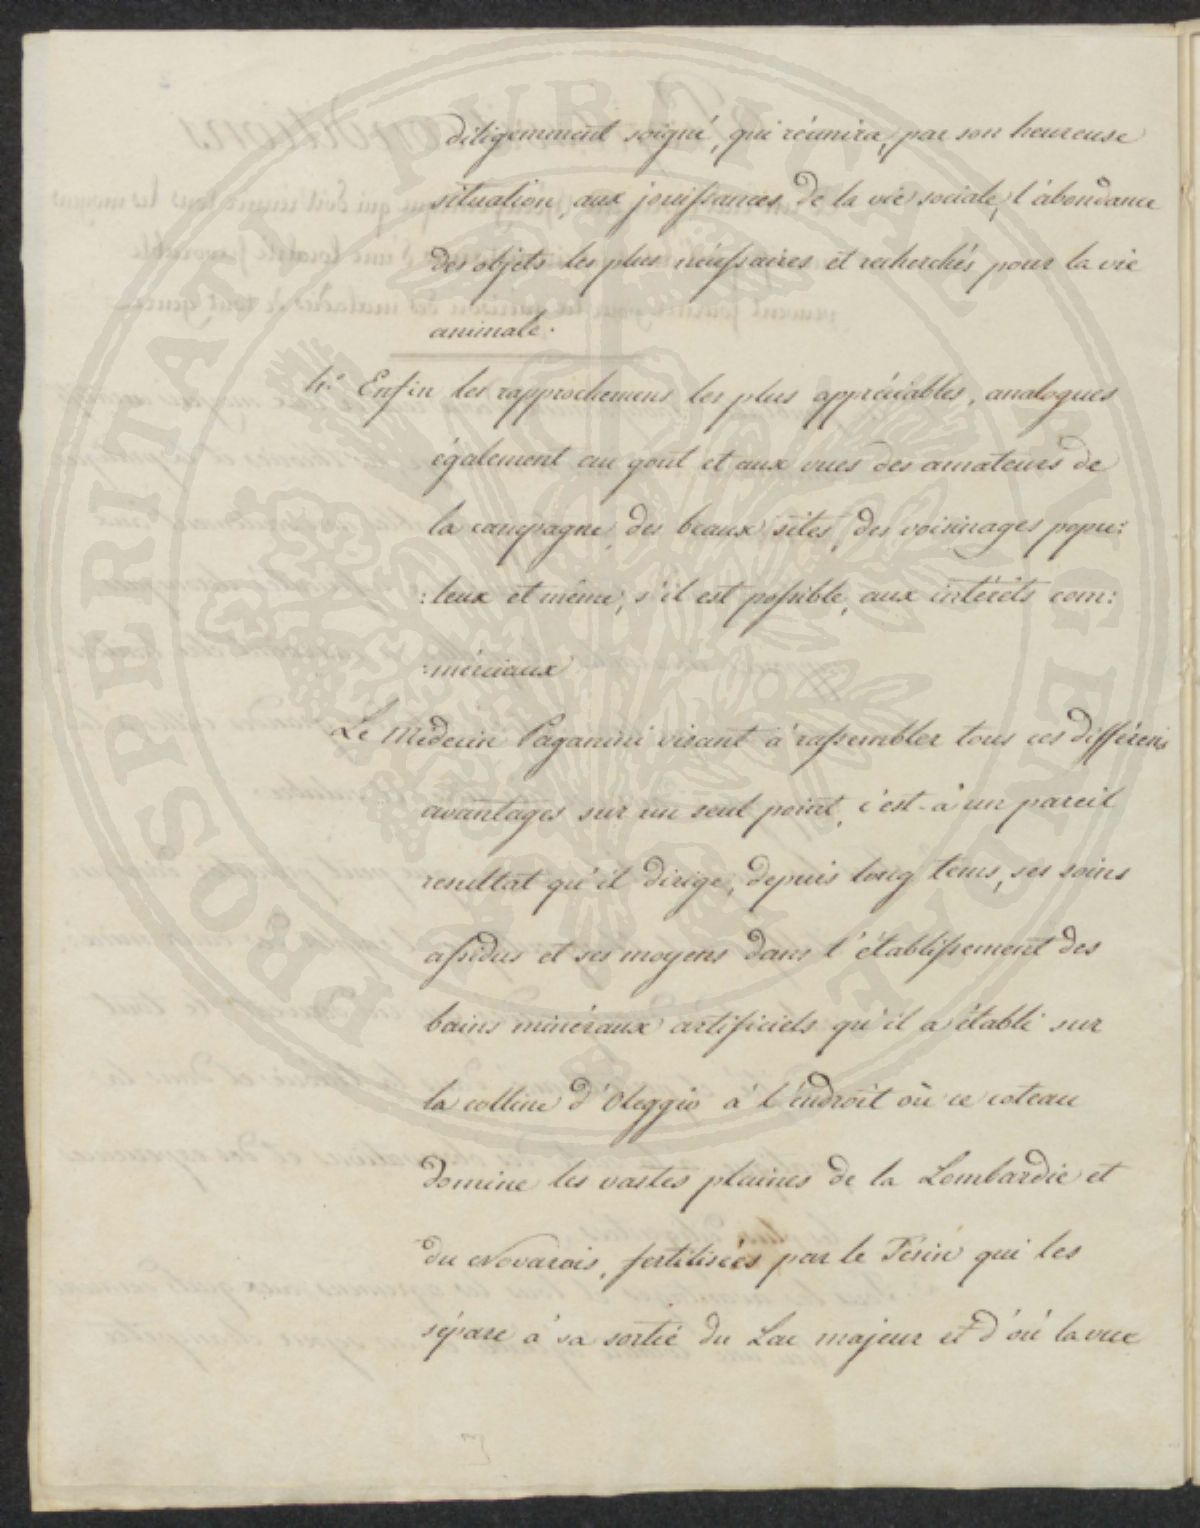 diligemment soigné, qui réunira, par son heureuse
situation, aux jouissances, de la vie sociale, l'abondance
des objets les plus nécessaires et recherchés pour la vie
animale.
4.° Enfin les rapprochemens les plus appréciables, analogues
également au gout et aux vues des amateurs de
la campagne, des beaux sites, des voisinages popu:
:leux et même, s'il est possible, aux intérêts com:
:mérciaux
Le Médecin Paganini visant à rassembler tous ces différens
avantages sur un seul point, c'est à un pareil
resultat qu'il dirige, depuis long tems, ses soins
assidus et ses moyens dans l'établissement des
bains minéraux artificiels qu'il a établi sur
la colline d'Oleggio à l'éndroit où ce coteau
domine les vastes plaines de la Lombardie et
du Novarais, fertilisées par le Tésin qui les
sépare à sa sortie du Lac majeur et d'où la vue
PROSPERITATI PUBLICAE AUGENDAE